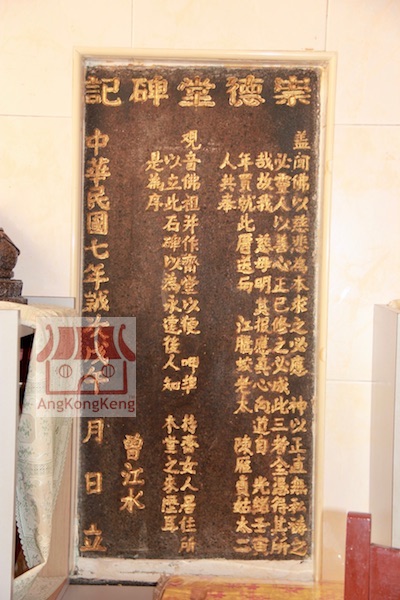 崇德堂碑記
盖闻佛以慈悲為本求之必應 神以正直無私禱之
必靈人以善心正己修之必成此三者全憑得其所
哉故我 慈母明其报應真心向道自 光緒壬寅
年買就此厝送與 江騰蛟 太 陳雁貞姑太二
人共奉
观音佛祖并作斋堂以便 呷準 持斋女人居住所
以立此石碑以為永遠後人知 本堂之來歷耳
是為序
曾江水
中華民國七年歲次戊午 月 日 立
AngKongKeng